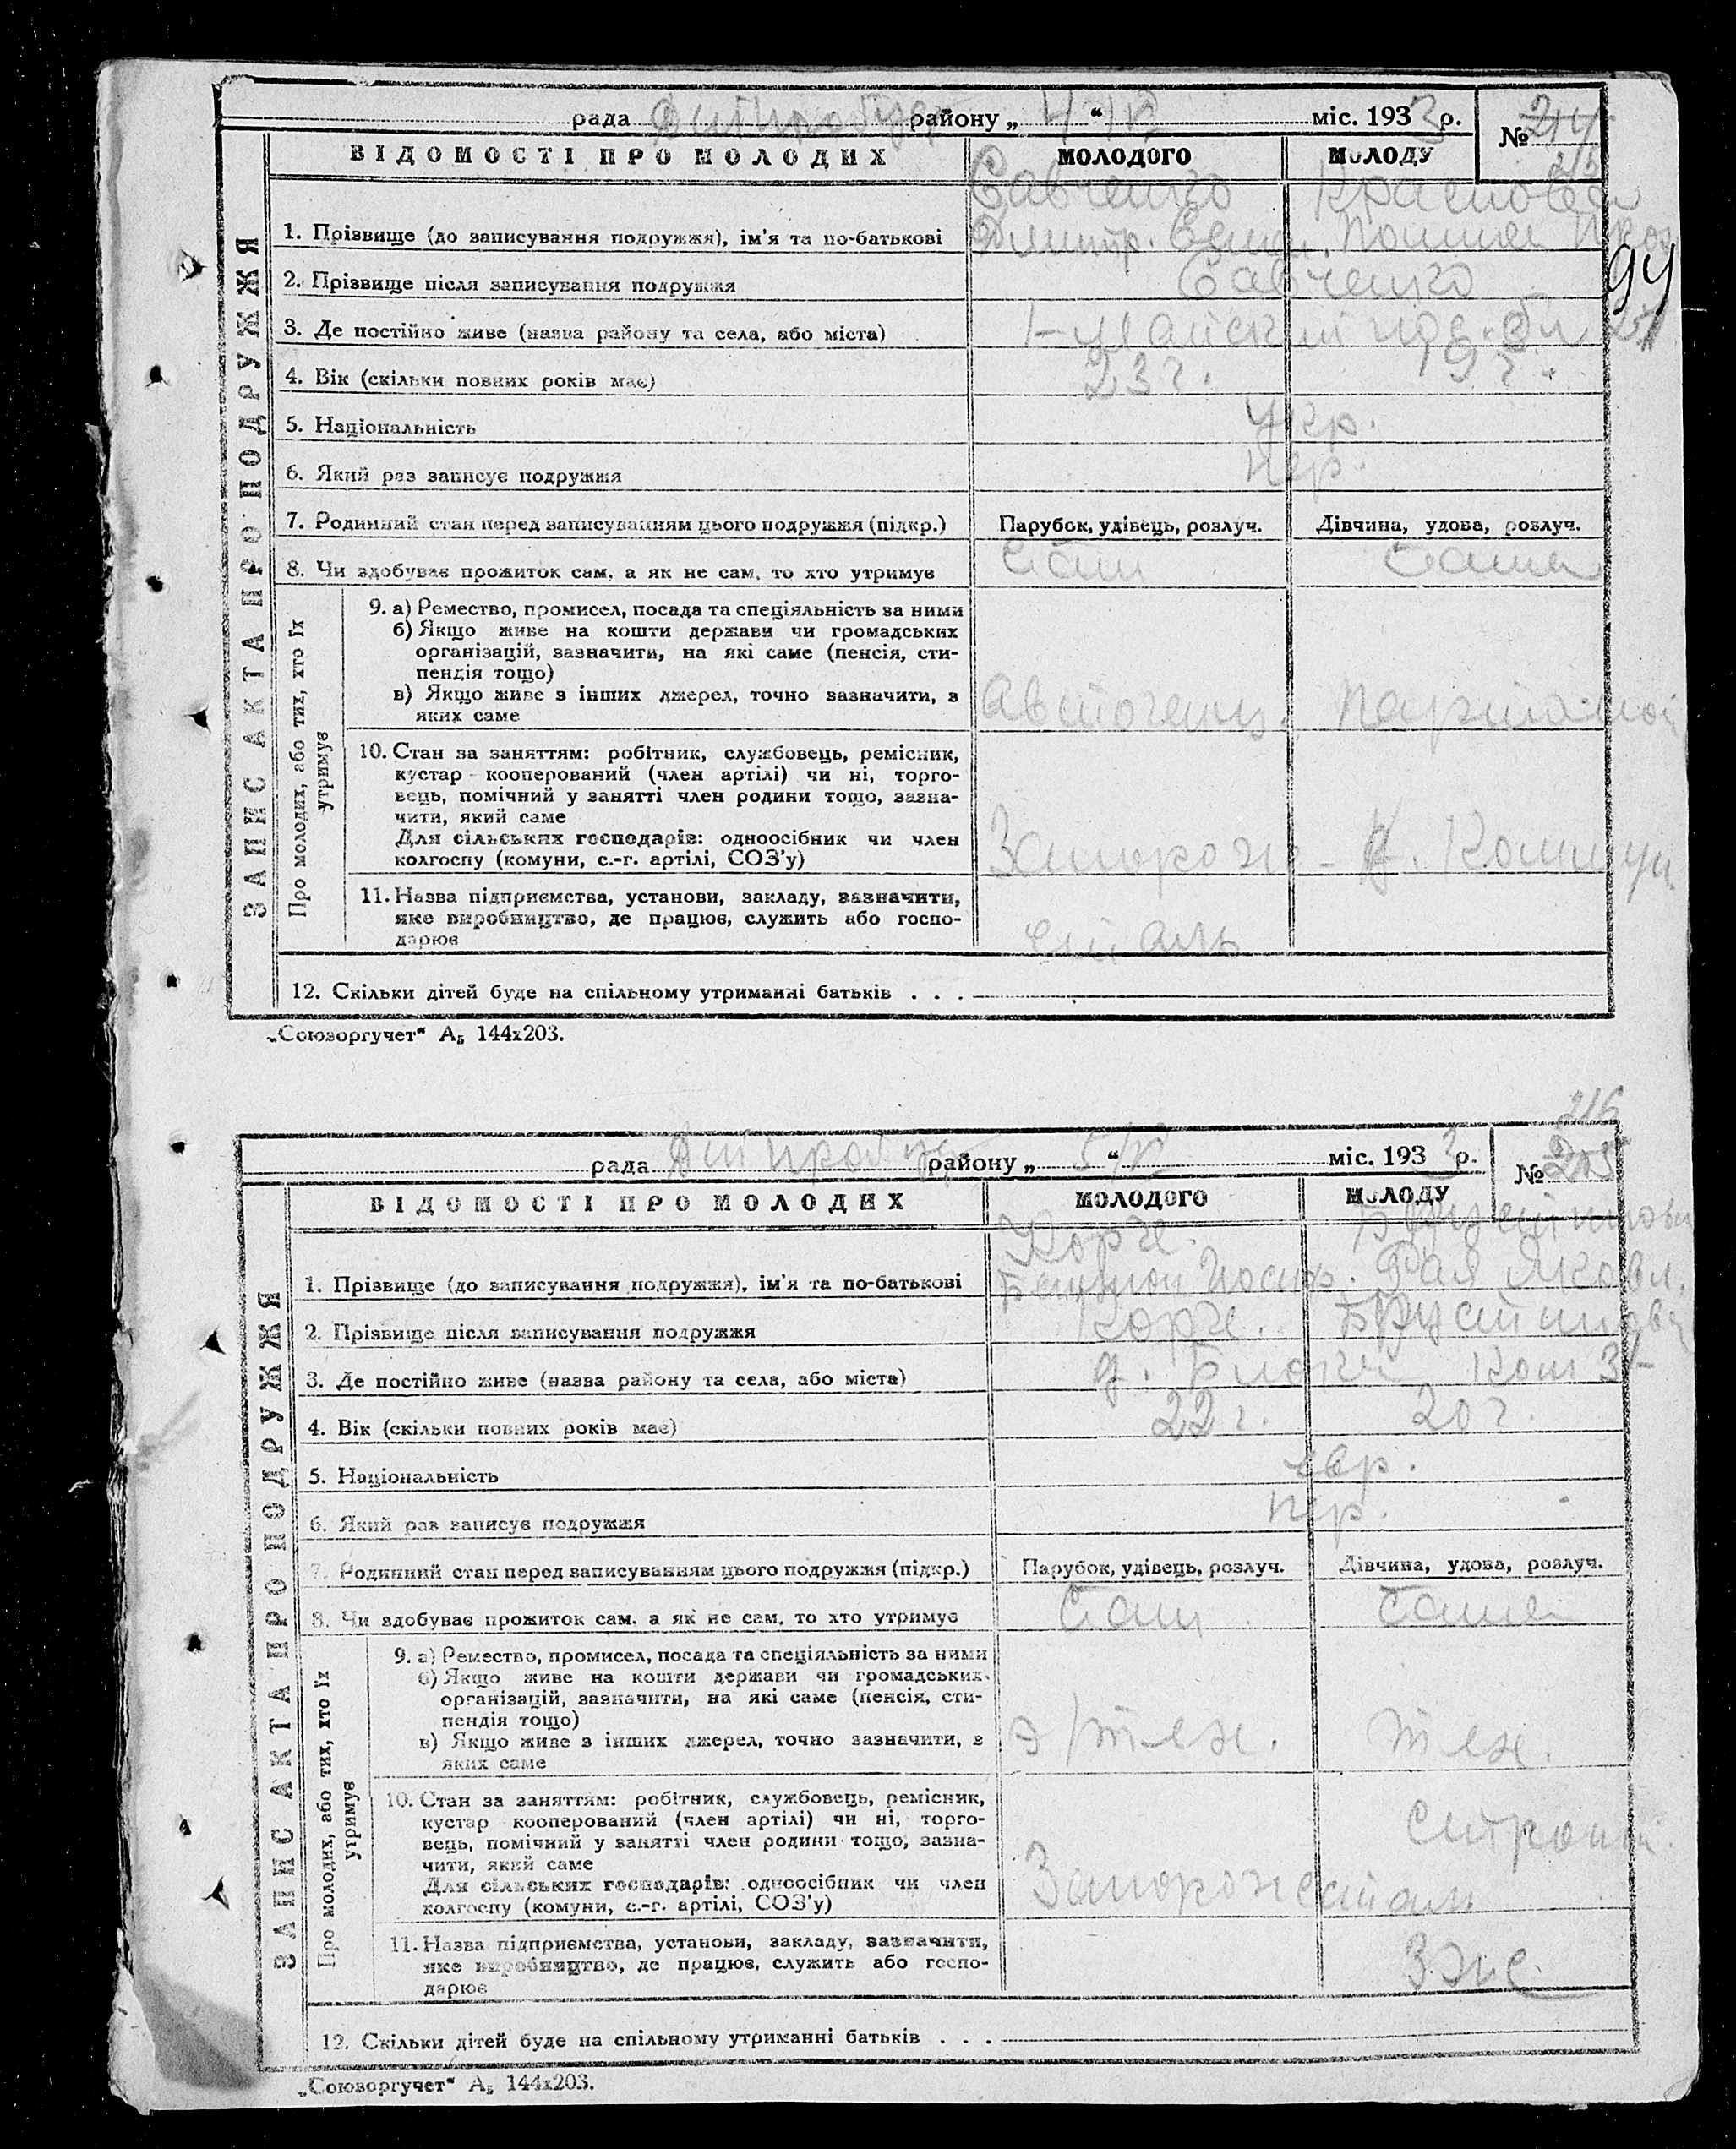 рада Дніпробуд району „ 4/IV “ міс. 1933 р. № 214
215
ВІДОМОСТІ ПРО МОЛОДИХ МОЛОДОГО МОЛОДУ
ЗАПИС АКТА ПРО ПОДРУЖЖЯ
Савченко
1. Прізвище (до записування подружжя), ім'я та по-батькові Дмитр.
94
2. Прізвище після записування подружжя Савченко
3. Де постійно живе (назва району та села, або міста) 1-Майський
4. Вік (скільки повних років має) 23 г. 19 г.
5. Національність Укр.
6. Який раз записує подружжя пер.
7. Родинний стан перед записуванням цього подружжя (підкр.) Парубок, удівець, розлуч. Дівчина, удова, розлуч.
8. Чи здобуває прожиток сам, а як не сам, то хто утримує Сам Сама
Про молодих, або тих, хто їх утримує
9. а) Ремество, промисел, посада та спеціяльність за ними
б) Якщо живе на кошти держави чи громадських
організацій, зазначити, на які саме (пенсія, сти-
пендія тощо)
в) Якщо живе з інших джерел, точно зазначити, з
яких саме
10. Стан за заняттям: робітник, службовець, ремісник,
кустар кооперований (член артілі) чи ні, торго-
вець, помічний у занятті член родини тощо, зазна-
чити, який саме
Для сільських господарів: одноосібник чи член
колгоспу (комуни, с.-г. артілі, СОЗ'у) Запорож-
11. Назва підприємства, установи, закладу, зазначити,
яке виробництво, де працює, служить або госпо-
дарює сталь
12. Скільки дітей буде на спільному утриманні батьків . . .
„Союзоргучет“ А₅ 144х203.
216
рада Дніпробуд району „ 5/IV “ міс. 1933 р. № 215
ВІДОМОСТІ ПРО МОЛОДИХ МОЛОДОГО МОЛОДУ
ЗАПИС АКТА ПРО ПОДРУЖЖЯ
Корж.
1. Прізвище (до записування подружжя), ім'я та по-батькові Йосиф. Рая Яковл.
2. Прізвище після записування подружжя Корж.
3. Де постійно живе (назва району та села, або міста)
4. Вік (скільки повних років має) 22 г. 20 г.
5. Національність євр.
6. Який раз записує подружжя пер.
7. Родинний стан перед записуванням цього подружжя (підкр.) Парубок, удівець, розлуч. Дівчина, удова, розлуч.
8. Чи здобуває прожиток сам, а як не сам, то хто утримує Сам Сама
Про молодих, або тих, хто їх утримує
9. а) Ремество, промисел, посада та спеціяльність за ними
б) Якщо живе на кошти держави чи громадських
організацій, зазначити, на які саме (пенсія, сти-
пендія тощо)
в) Якщо живе з інших джерел, точно зазначити, з
яких саме э/тех. тех.
10. Стан за заняттям: робітник, службовець, ремісник,
кустар кооперований (член артілі) чи ні, торго-
вець, помічний у занятті член родини тощо, зазна-
чити, який саме
Для сільських господарів: одноосібник чи член
колгоспу (комуни, с.-г. артілі, СОЗ'у) Запорожсталь
11. Назва підприємства, установи, закладу, зазначити,
яке виробництво, де працює, служить або госпо-
дарює
12. Скільки дітей буде на спільному утриманні батьків . . .
„Союзоргучет“ А₅ 144х203.